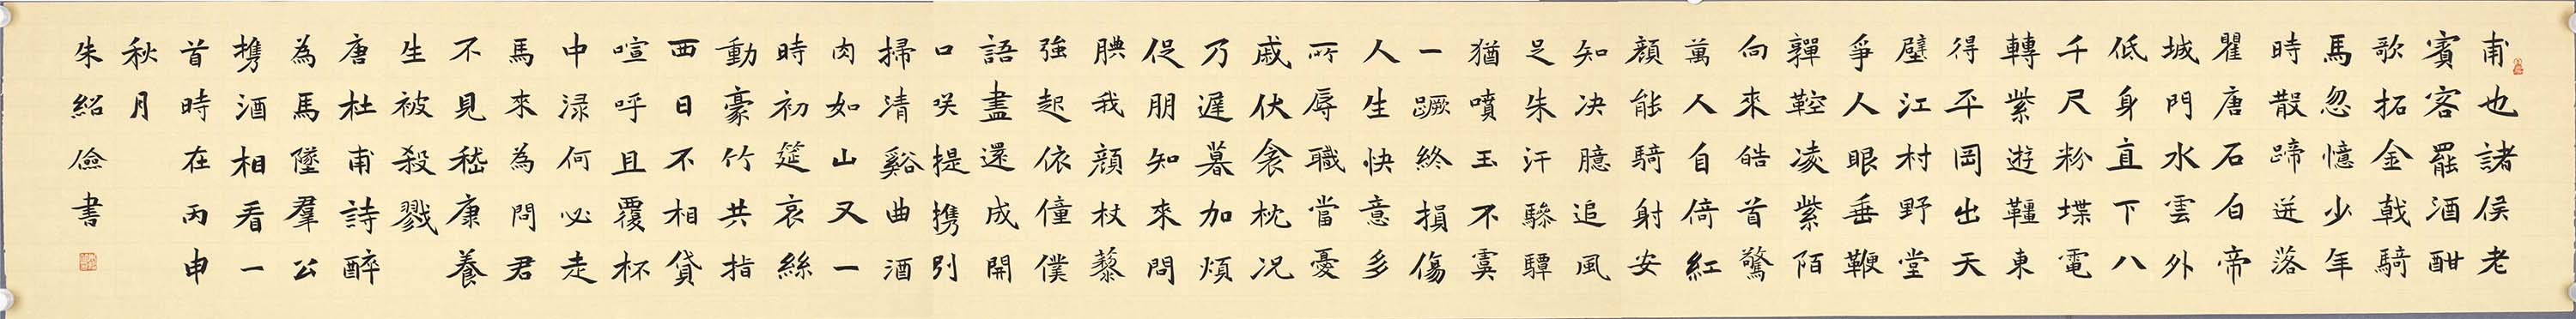 甫也諸侯老
賓客罷酒酣
歌拓金戟騎
馬忽憶少年
時散蹄迸落
瞿唐石白帝
城門水雲外
低身直下八
千尺粉堞電
轉紫遊韁東
得平岡出天
壁江村野堂
爭人眼垂鞭
嚲鞚凌紫陌
向來皓首驚
萬人自倚紅
顏能騎射安
知決臆追風
足朱汗驂驔
猶噴玉不虞
一蹶終損傷
人生快意多
所辱職當憂
戚伏衾枕況
乃遲暮加煩
促朋知來問
腆我顏杖藜
強起依僮僕
語盡還成開
口笑提攜別
掃清谿曲酒
肉如山又一
時初筵哀絲
動豪竹共指
西日不相貸
喧呼且覆杯
中淥何必走
馬來為問君
不見嵇康養
生被殺戮
唐杜甫詩醉
為馬墜羣公
攜酒相看一
首時在丙申
秋月
朱紹儉書